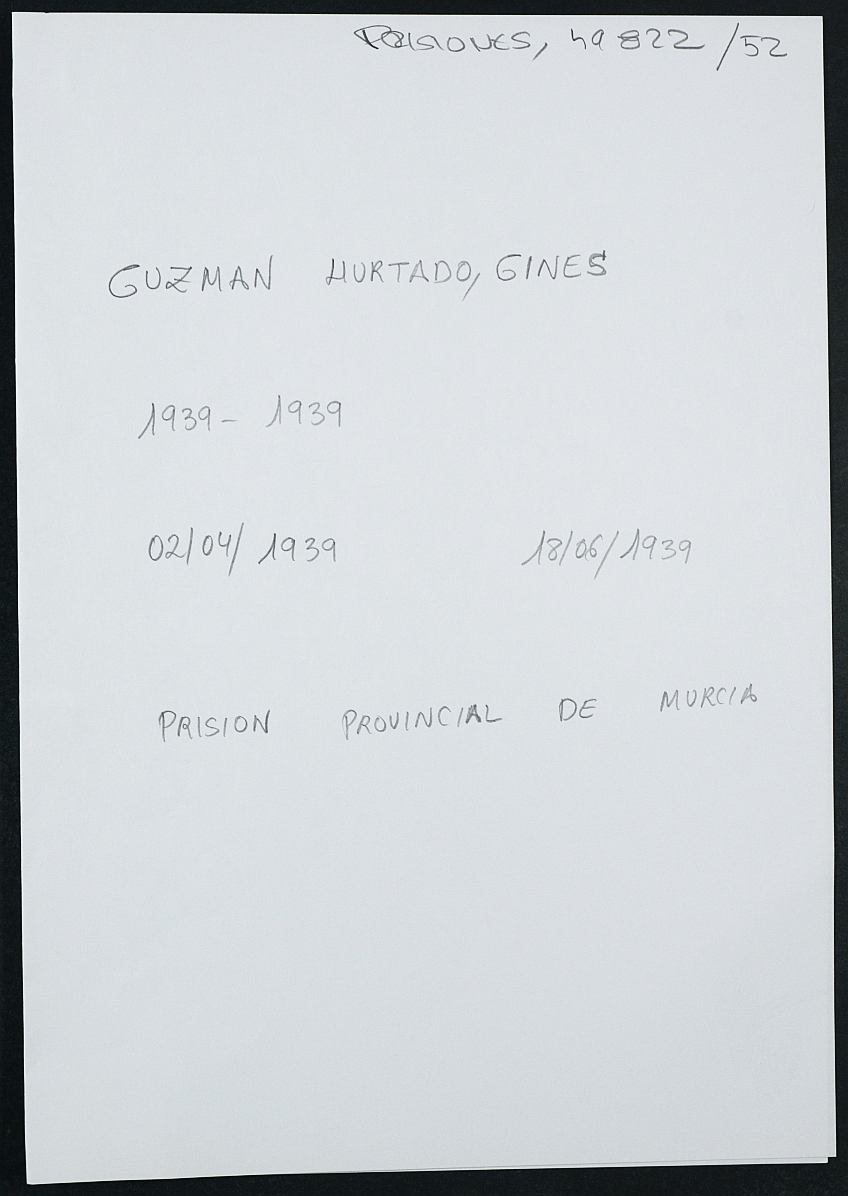 PRISIONES, 49822/52
GUZMAN HURTADO, GINES
1939 - 1939
02/04/1939 18/06/1939
PRISION PROVINCIAL DE MURCIA